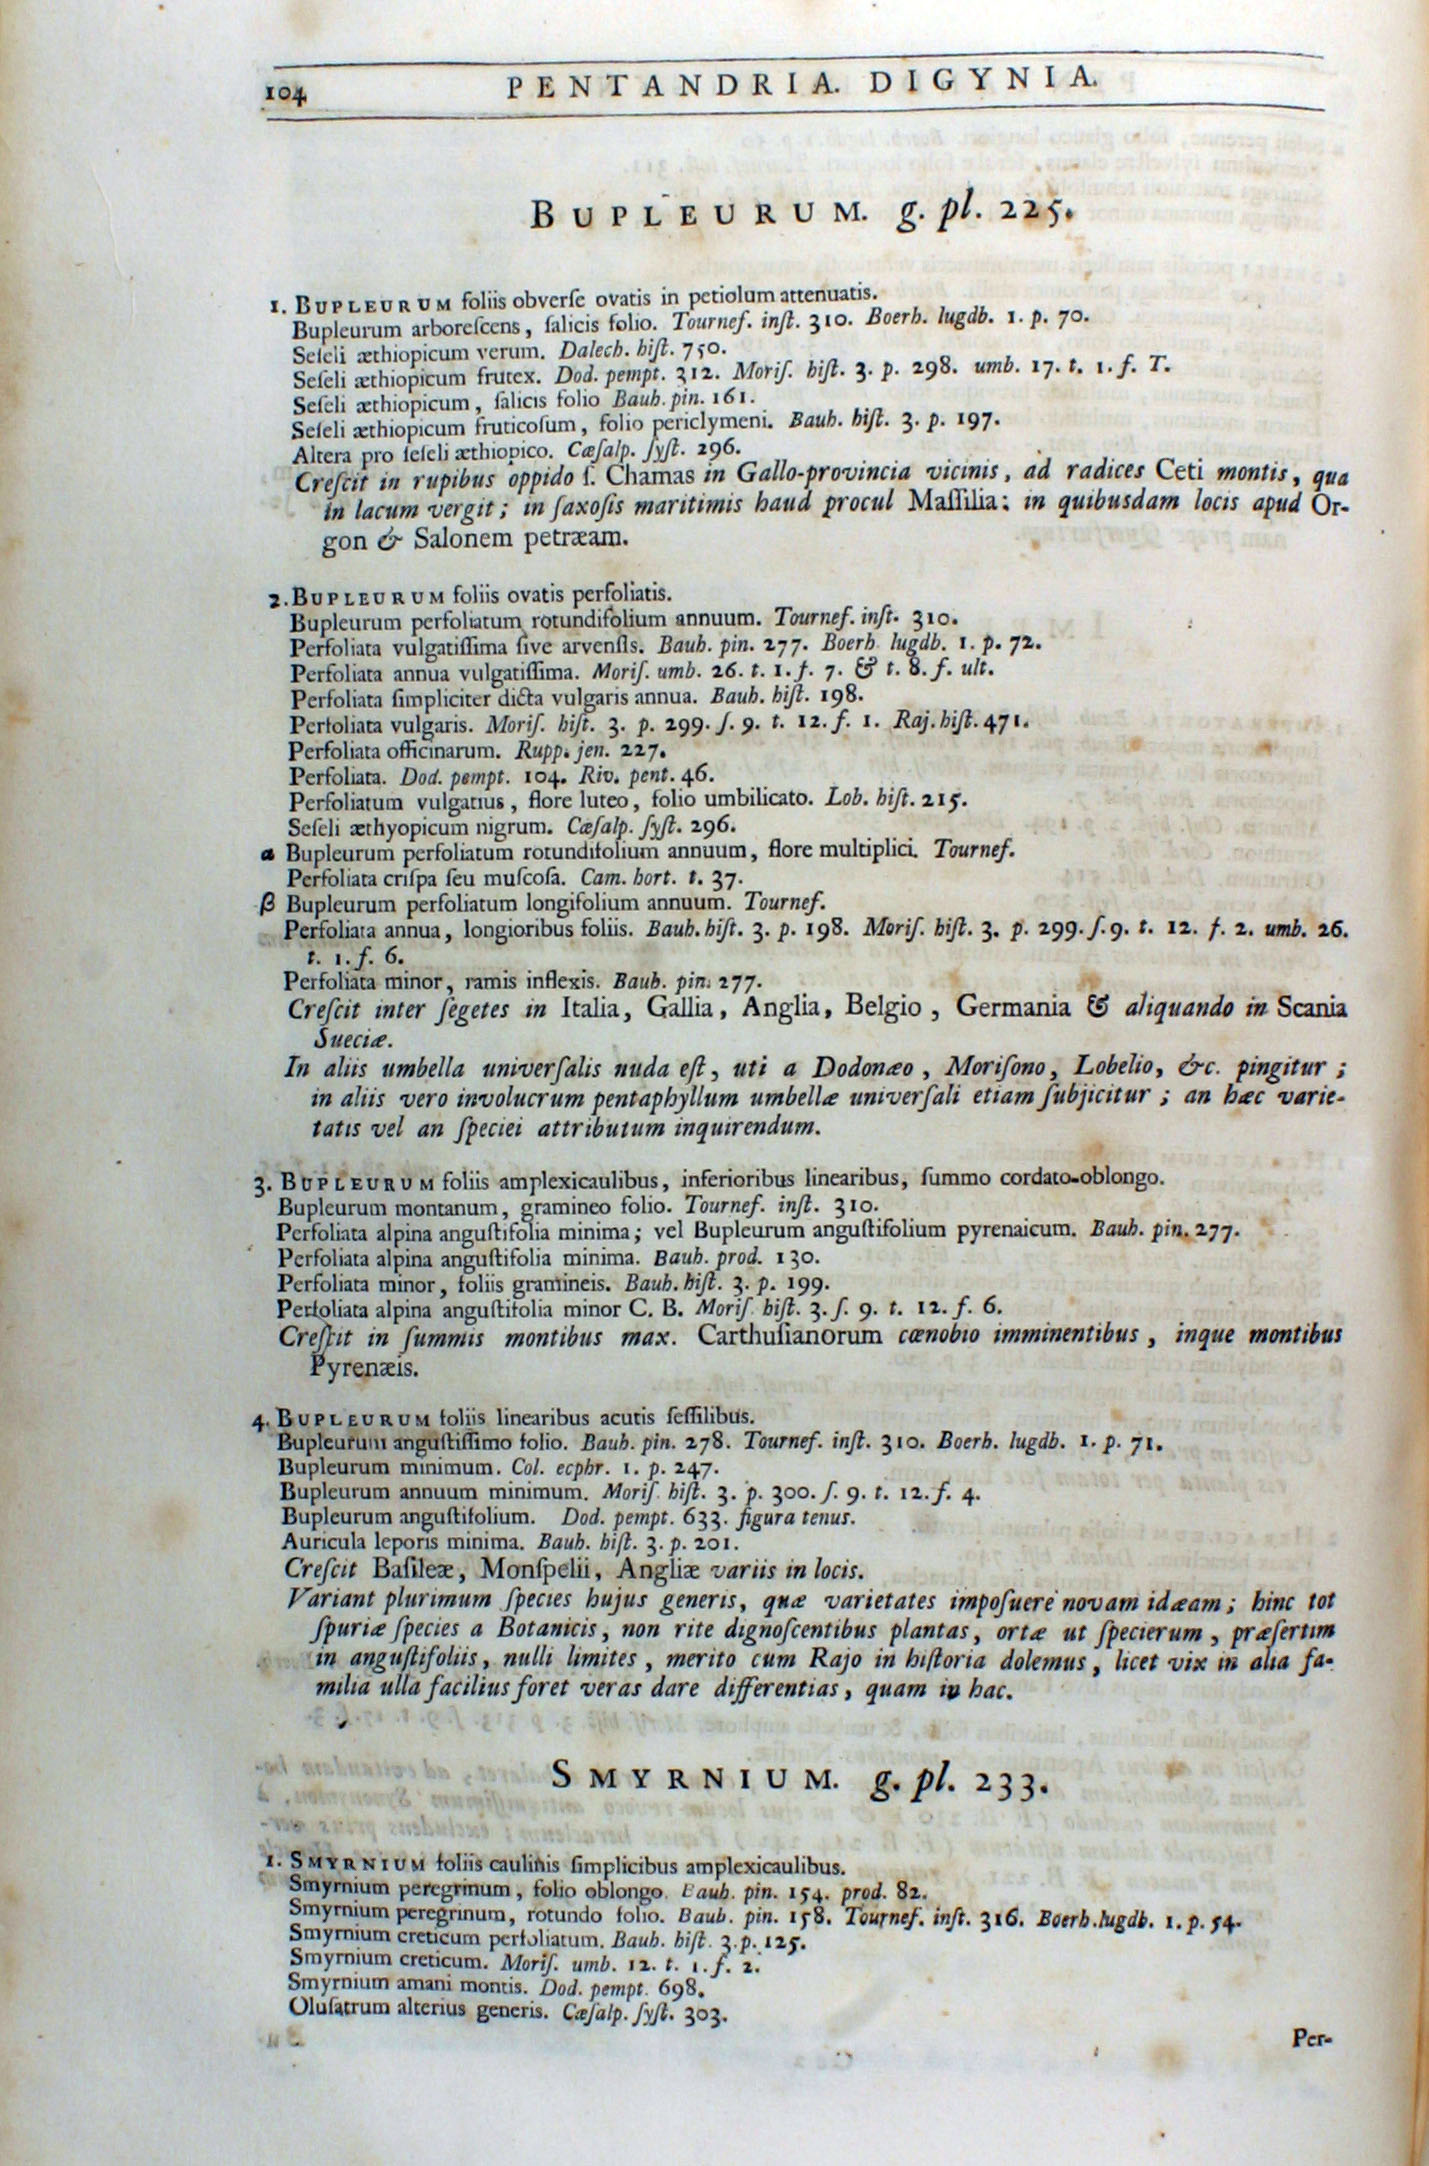 104 PENTANDRIA. DIGYNIA.
BUPLEURUM. g. pl. 225.
1. BUPLEURUM foliis obverſe ovatis in petiolum attenuatis.
Bupleurum arboreſcens, ſalicis folio. Tournef. inſt. 310. Boerh. lugdb. 1. p. 70.
Seſeli æthiopicum verum. Dalech. hiſt. 750.
Seſeli æthiopicum frutex. Dod. pempt. 312. Moriſ. hiſt. 3. p. 298. umb. 17. t. 1. f. T.
Seſeli æthiopicum, ſalicis folio Bauh. pin. 161.
Seſeli æthiopicum fruticoſum, folio periclymeni. Bauh. hiſt. 3. p. 197.
Altera pro ſeſeli æthiopico. Cæſalp. ſyſt. 296.
Creſcit in rupibus oppido ſ. Chamas in Gallo-provincia vicinis, ad radices Ceti montis, qua
in lacum vergit; in ſaxoſis maritimis haud procul Maſſilia; in quibusdam locis apud Or-
gon & Salonem petræam.
2. BUPLEURUM foliis ovatis perfoliatis.
Bupleurum perfoliatum rotundifolium annuum. Tournef. inſt. 310.
Perfoliata vulgatiſſima ſive arvenſis. Bauh. pin. 277. Boerh. lugdb. 1. p. 72.
Perfoliata annua vulgatiſſima. Moriſ. umb. 26. t. 1. f. 7. & t. 8. f. ult.
Perfoliata ſimpliciter dicta vulgaris annua. Bauh. hiſt. 198.
Perfoliata vulgaris. Moriſ. hiſt. 3. p. 299. ſ. 9. t. 12. f. 1. Raj. hiſt. 471.
Perfoliata officinarum. Rupp. jen. 227.
Perfoliata. Dod. pempt. 104. Riv. pent. 46.
Perfoliatum vulgatius, flore luteo, folio umbilicato. Lob. hiſt. 215.
Seſeli æthyopicum nigrum. Cæſalp. ſyſt. 296.
α Bupleurum perfoliatum rotundifolium annuum, flore multiplici. Tournef.
Perfoliata criſpa ſeu muſcoſa. Cam. hort. t. 37.
β Bupleurum perfoliatum longifolium annuum. Tournef.
Perfoliata annua, longioribus foliis. Bauh. hiſt. 3. p. 198. Moriſ. hiſt. 3. p. 299. ſ. 9. t. 12. f. 2. umb. 26.
t. 1. f. 6.
Perfoliata minor, ramis inflexis. Bauh. pin. 277.
Creſcit inter ſegetes in Italia, Gallia, Anglia, Belgio, Germania & aliquando in Scania
Sueciæ.
In aliis umbella univerſalis nuda eſt, uti a Dodonæo, Moriſono, Lobelio, &c. pingitur;
in aliis vero involucrum pentaphyllum umbellæ univerſali etiam ſubjicitur; an hæc varie-
tatis vel an ſpeciei attributum inquirendum.
3. BUPLEURUM foliis amplexicaulibus, inferioribus linearibus, ſummo cordato-oblongo.
Bupleurum montanum, gramineo folio. Tournef. inſt. 310.
Perfoliata alpina anguſtifolia minima; vel Bupleurum anguſtifolium pyrenaicum. Bauh. pin. 277.
Perfoliata alpina anguſtifolia minima. Bauh. prod. 130.
Perfoliata minor, foliis gramineis. Bauh. hiſt. 3. p. 199.
Perfoliata alpina anguſtifolia minor C. B. Moriſ. hiſt. 3. ſ. 9. t. 12. f. 6.
Creſcit in ſummis montibus max. Carthuſianorum cœnobio imminentibus, inque montibus
Pyrenæis.
4. BUPLEURUM foliis linearibus acutis ſeſſilibus.
Bupleurum anguſtiſſimo folio. Bauh. pin. 278. Tournef. inſt. 310. Boerh. lugdb. 1. p. 71.
Bupleurum minimum. Col. ecphr. 1. p. 247.
Bupleurum annuum minimum. Moriſ. hiſt. 3. p. 300. ſ. 9. t. 12. f. 4.
Bupleurum anguſtifolium. Dod. pempt. 633. figura tenus.
Auricula leporis minima. Bauh. hiſt. 3. p. 201.
Creſcit Baſileæ, Monſpelii, Angliæ variis in locis.
Variant plurimum ſpecies hujus generis, quæ varietates impoſuere novam idæam; hinc tot
ſpuriæ ſpecies a Botanicis, non rite dignoſcentibus plantas, ortæ ut ſpecierum, præſertim
in anguſtifoliis, nulli limites, merito cum Rajo in hiſtoria dolemus, licet vix in alia fa-
milia ulla facilius foret veras dare differentias, quam in hac.
SMYRNIUM. g. pl. 233.
1. SMYRNIUM foliis caulinis ſimplicibus amplexicaulibus.
Smyrnium peregrinum, folio oblongo. Bauh. pin. 154. prod. 82.
Smyrnium peregrinum, rotundo folio. Bauh. pin. 158. Tournef. inſt. 316. Boerh. lugdb. 1. p. 54.
Smyrnium creticum perfoliatum. Bauh. hiſt. 3. p. 125.
Smyrnium creticum. Moriſ. umb. 12. t. 1. f. 2.
Smyrnium amani montis. Dod. pempt. 698.
Oluſatrum alterius generis. Cæſalp. ſyſt. 303.
Per-